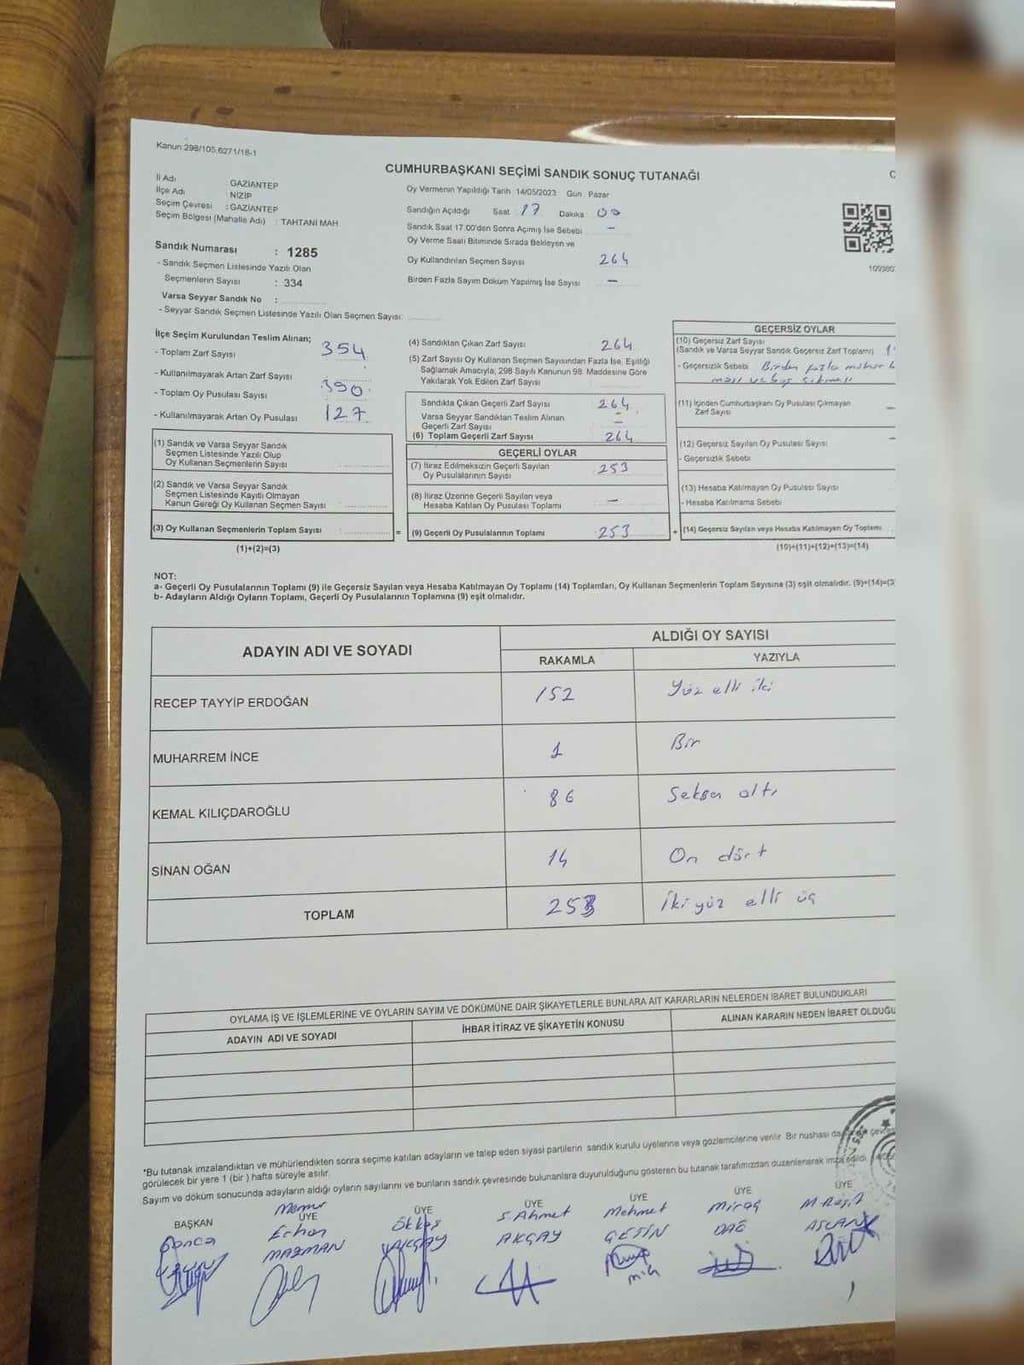 Kanun:298/105,6271/18-1
CUMHURBAŞKANI SEÇİMİ SANDIK SONUÇ TUTANAĞI
İl Adı : GAZİANTEP
İlçe Adı : NİZİP
Seçim Çevresi : GAZİANTEP
Seçim Bölgesi (Mahalle Adı) : TAHTANI MAH
Sandık Numarası : 1285
- Sandık Seçmen Listesinde Yazılı Olan
Seçmenlerin Sayısı : 334
Varsa Seyyar Sandık No :
- Seyyar Sandık Seçmen Listesinde Yazılı Olan Seçmen Sayısı:
Oy Vermenin Yapıldığı Tarih 14/05/2023 Gün Pazar
Sandığın Açıldığı Saat 17 Dakika 00
Sandık Saat 17.00'den Sonra Açılmış İse Sebebi -
Oy Verme Saati Bitiminde Sırada Bekleyen ve
Oy Kullandırılan Seçmen Sayısı 264
Birden Fazla Sayım Döküm Yapılmış İse Sayısı -
İlçe Seçim Kurulundan Teslim Alınan;
- Toplam Zarf Sayısı 354
- Kullanılmayarak Artan Zarf Sayısı
- Toplam Oy Pusulası Sayısı 390
- Kullanılmayarak Artan Oy Pusulası 127
(1) Sandık ve Varsa Seyyar Sandık
Seçmen Listesinde Yazılı Olup
Oy Kullanan Seçmenlerin Sayısı
(2) Sandık ve Varsa Seyyar Sandık
Seçmen Listesinde Kayıtlı Olmayan
Kanun Gereği Oy Kullanan Seçmen Sayısı
(3) Oy Kullanan Seçmenlerin Toplam Sayısı
(1)+(2)=(3)
(4) Sandıktan Çıkan Zarf Sayısı 264
(5) Zarf Sayısı Oy Kullanan Seçmen Sayısından Fazla İse, Eşitliği
Sağlamak Amacıyla, 298 Sayılı Kanunun 98. Maddesine Göre
Yakılarak Yok Edilen Zarf Sayısı -
Sandıkta Çıkan Geçerli Zarf Sayısı 264
Varsa Seyyar Sandıktan Teslim Alınan
Geçerli Zarf Sayısı -
(6) Toplam Geçerli Zarf Sayısı 264
GEÇERLİ OYLAR
(7) İtiraz Edilmeksizin Geçerli Sayılan
Oy Pusulalarının Sayısı 253
(8) İtiraz Üzerine Geçerli Sayılan veya
Hesaba Katılan Oy Pusulası Toplamı -
= (9) Geçerli Oy Pusulalarının Toplamı 253
GEÇERSİZ OYLAR
(10) Geçersiz Zarf Sayısı
(Sandık ve Varsa Seyyar Sandık Geçersiz Zarf Toplamı)
- Geçersizlik Sebebi Birden fazla mühür
(11) İçinden Cumhurbaşkanı Oy Pusulası Çıkmayan
Zarf Sayısı -
(12) Geçersiz Sayılan Oy Pusulası Sayısı -
- Geçersizlik Sebebi
(13) Hesaba Katılmayan Oy Pusulası Sayısı
- Hesaba Katılmama Sebebi
+ (14) Geçersiz Sayılan veya Hesaba Katılmayan Oy Toplamı
(10)+(11)+(12)+(13)=(14)
NOT:
a- Geçerli Oy Pusulalarının Toplamı (9) ile Geçersiz Sayılan veya Hesaba Katılmayan Oy Toplamı (14) Toplamları, Oy Kullanan Seçmenlerin Toplam Sayısına (3) eşit olmalıdır. (9)+(14)=(3
b- Adayların Aldığı Oyların Toplamı, Geçerli Oy Pusulalarının Toplamına (9) eşit olmalıdır.
ADAYIN ADI VE SOYADI
ALDIĞI OY SAYISI
RAKAMLA YAZIYLA
RECEP TAYYİP ERDOĞAN 152 Yüz elli iki
MUHARREM İNCE 1 Bir
KEMAL KILIÇDAROĞLU 86 Seksen altı
SİNAN OĞAN 14 On dört
TOPLAM 253 İki yüz elli üç
OYLAMA İŞ VE İŞLEMLERİNE VE OYLARIN SAYIM VE DÖKÜMÜNE DAİR ŞİKAYETLERLE BUNLARA AİT KARARLARIN NELERDEN İBARET BULUNDUKLARI
ADAYIN ADI VE SOYADI İHBAR İTİRAZ VE ŞİKAYETİN KONUSU ALINAN KARARIN NEDEN İBARET OLDUĞU
*Bu tutanak imzalandıktan ve mühürlendikten sonra seçime katılan adayların ve talep eden siyasi partilerin sandık kurulu üyelerine veya gözlemcilerine verilir. Bir nushası da
görülecek bir yere 1 (bir) hafta süreyle asılır.
Sayım ve döküm sonucunda adayların aldığı oyların sayılarını ve bunların sandık çevresinde bulunanlara duyurulduğunu gösteren bu tutanak tarafımızdan düzenlenerek imza edildi.
BAŞKAN ÜYE ÜYE ÜYE ÜYE ÜYE ÜYE
Gonca Memur Erhan MAZMAN Ökkeş AKÇAY S Ahmet AKÇAY Mehmet ÇETİN Miraç DAĞ M Raşit ASLAN